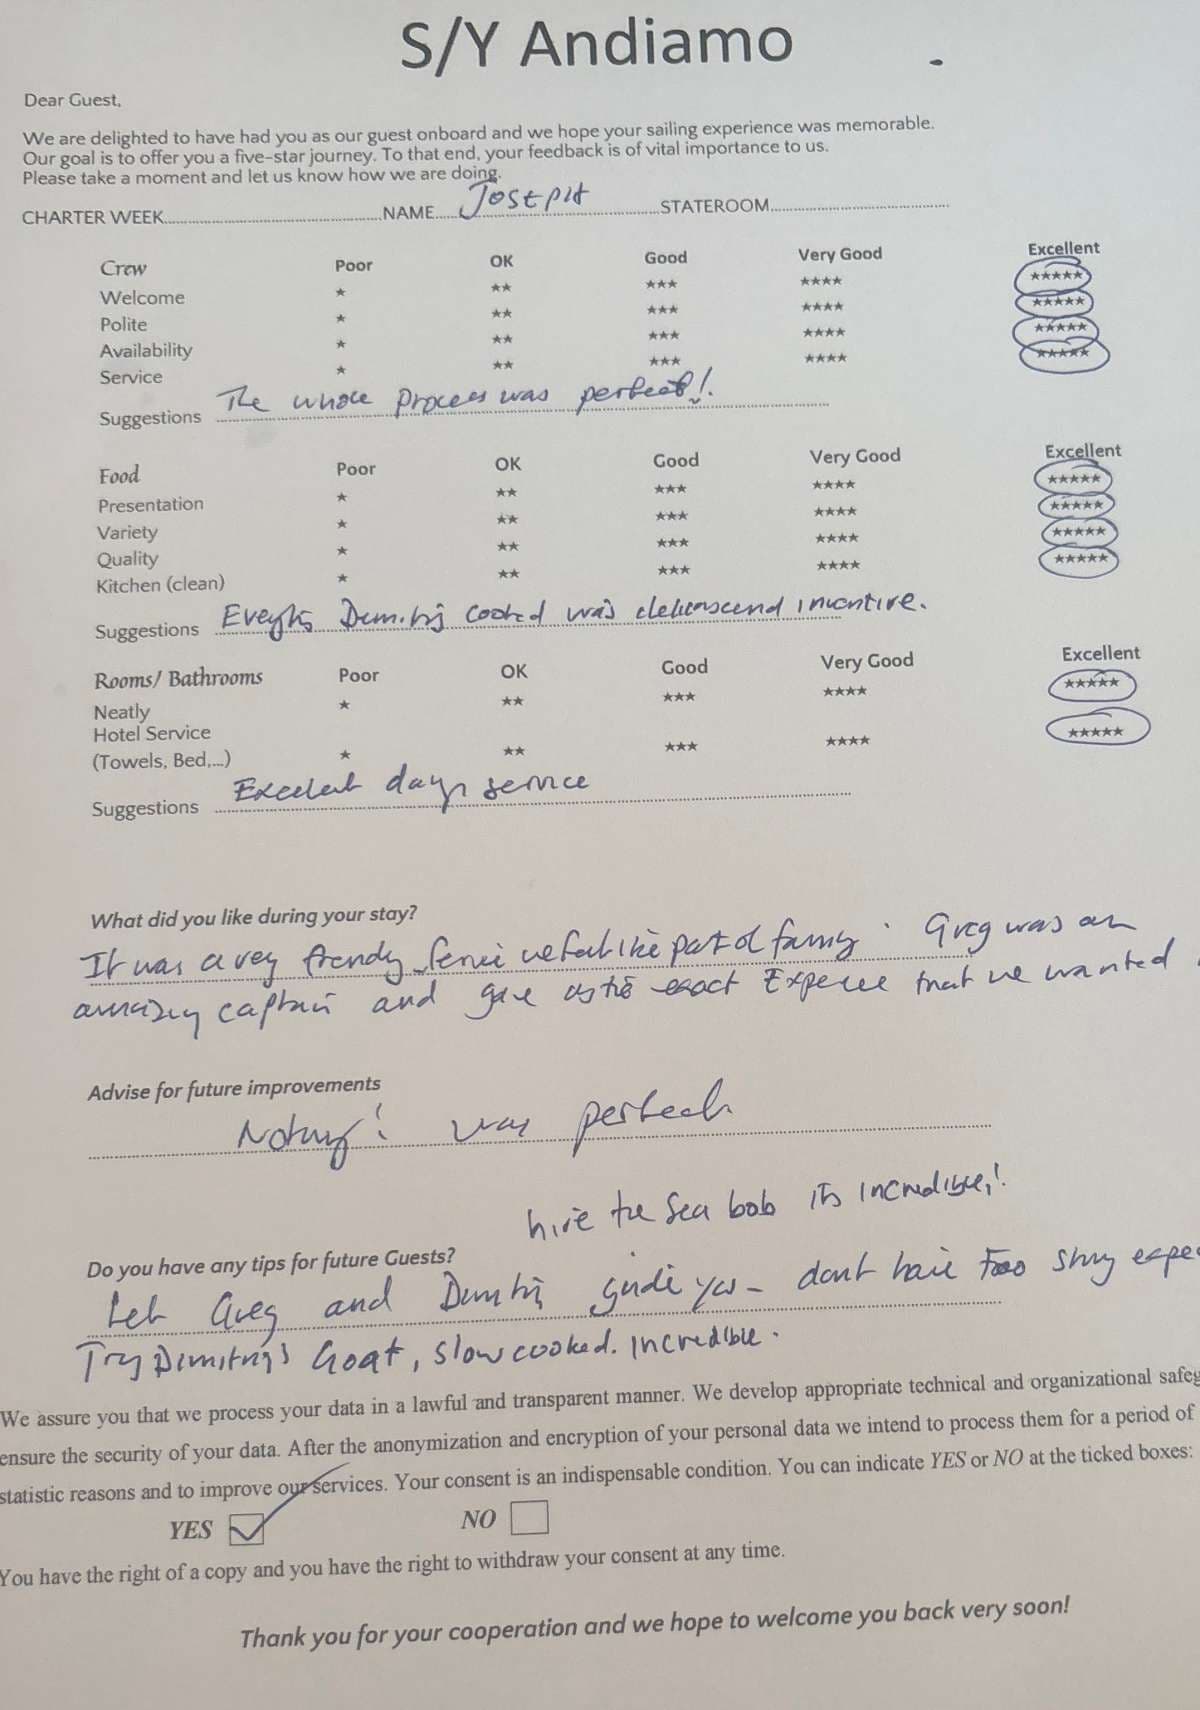 S/Y Andiamo
Dear Guest,
We are delighted to have had you as our guest onboard and we hope your sailing experience was memorable.
Our goal is to offer you a five-star journey. To that end, your feedback is of vital importance to us.
Please take a moment and let us know how we are doing.
CHARTER WEEK NAME JOSEPH STATEROOM
Crew Poor OK Good Very Good Excellent
Welcome ★ ★★ ★★★ ★★★★ ★★★★★
Polite ★ ★★ ★★★ ★★★★ ★★★★★
Availability ★ ★★ ★★★ ★★★★ ★★★★★
Service ★ ★★ ★★★ ★★★★ ★★★★★
Suggestions The whole process was perfect!
Food Poor OK Good Very Good Excellent
Presentation ★ ★★ ★★★ ★★★★ ★★★★★
Variety ★ ★★ ★★★ ★★★★ ★★★★★
Quality ★ ★★ ★★★ ★★★★ ★★★★★
Kitchen (clean) ★ ★★ ★★★ ★★★★ ★★★★★
Suggestions Dimitris cooked was inventive.
Rooms/ Bathrooms Poor OK Good Very Good Excellent
Neatly ★ ★★ ★★★ ★★★★ ★★★★★
Hotel Service
(Towels, Bed,...) ★ ★★ ★★★ ★★★★ ★★★★★
Suggestions Excellent days service
What did you like during your stay?
It was a very friendly service we felt like part of family. Greg was an
amazing captain and gave us the exact Experience that we wanted
Advise for future improvements
Nothing! was perfect
hire the Sea bob its incredible!
Do you have any tips for future Guests?
Let Greg and Dimitris guide you - dont have too
Try Dimitris Goat, slow cooked. Incredible.
We assure you that we process your data in a lawful and transparent manner. We develop appropriate technical and organizational safeg
ensure the security of your data. After the anonymization and encryption of your personal data we intend to process them for a period of
statistic reasons and to improve our services. Your consent is an indispensable condition. You can indicate YES or NO at the ticked boxes:
YES NO
You have the right of a copy and you have the right to withdraw your consent at any time.
Thank you for your cooperation and we hope to welcome you back very soon!